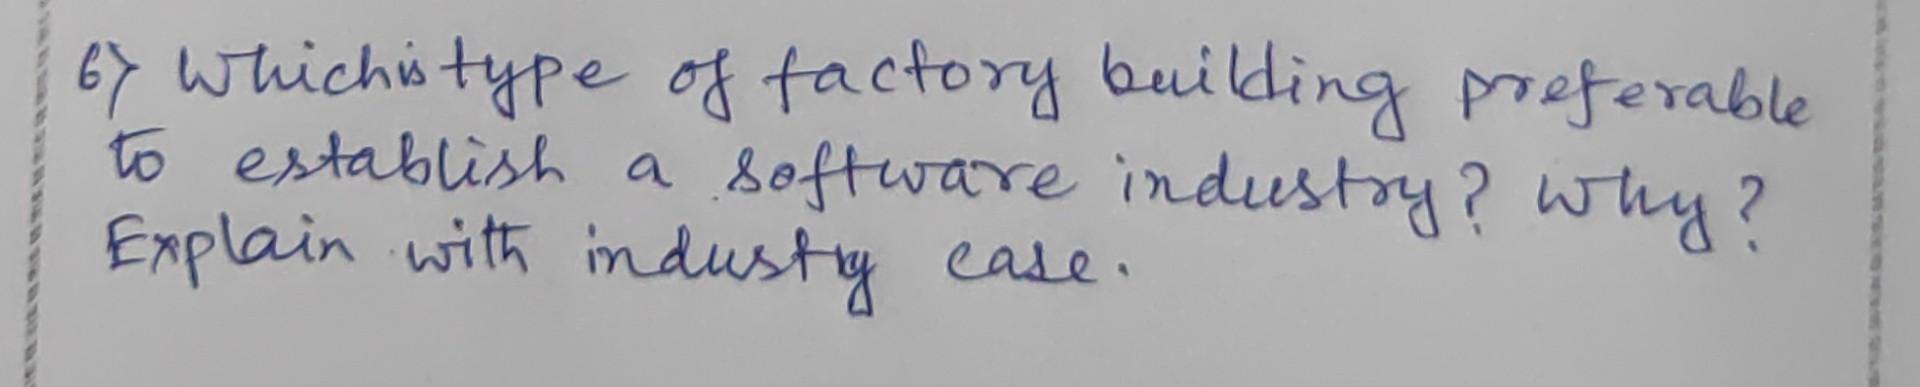 6) Which is type of factory building preferable
to establish a software industry? Why?
Explain with industry case.